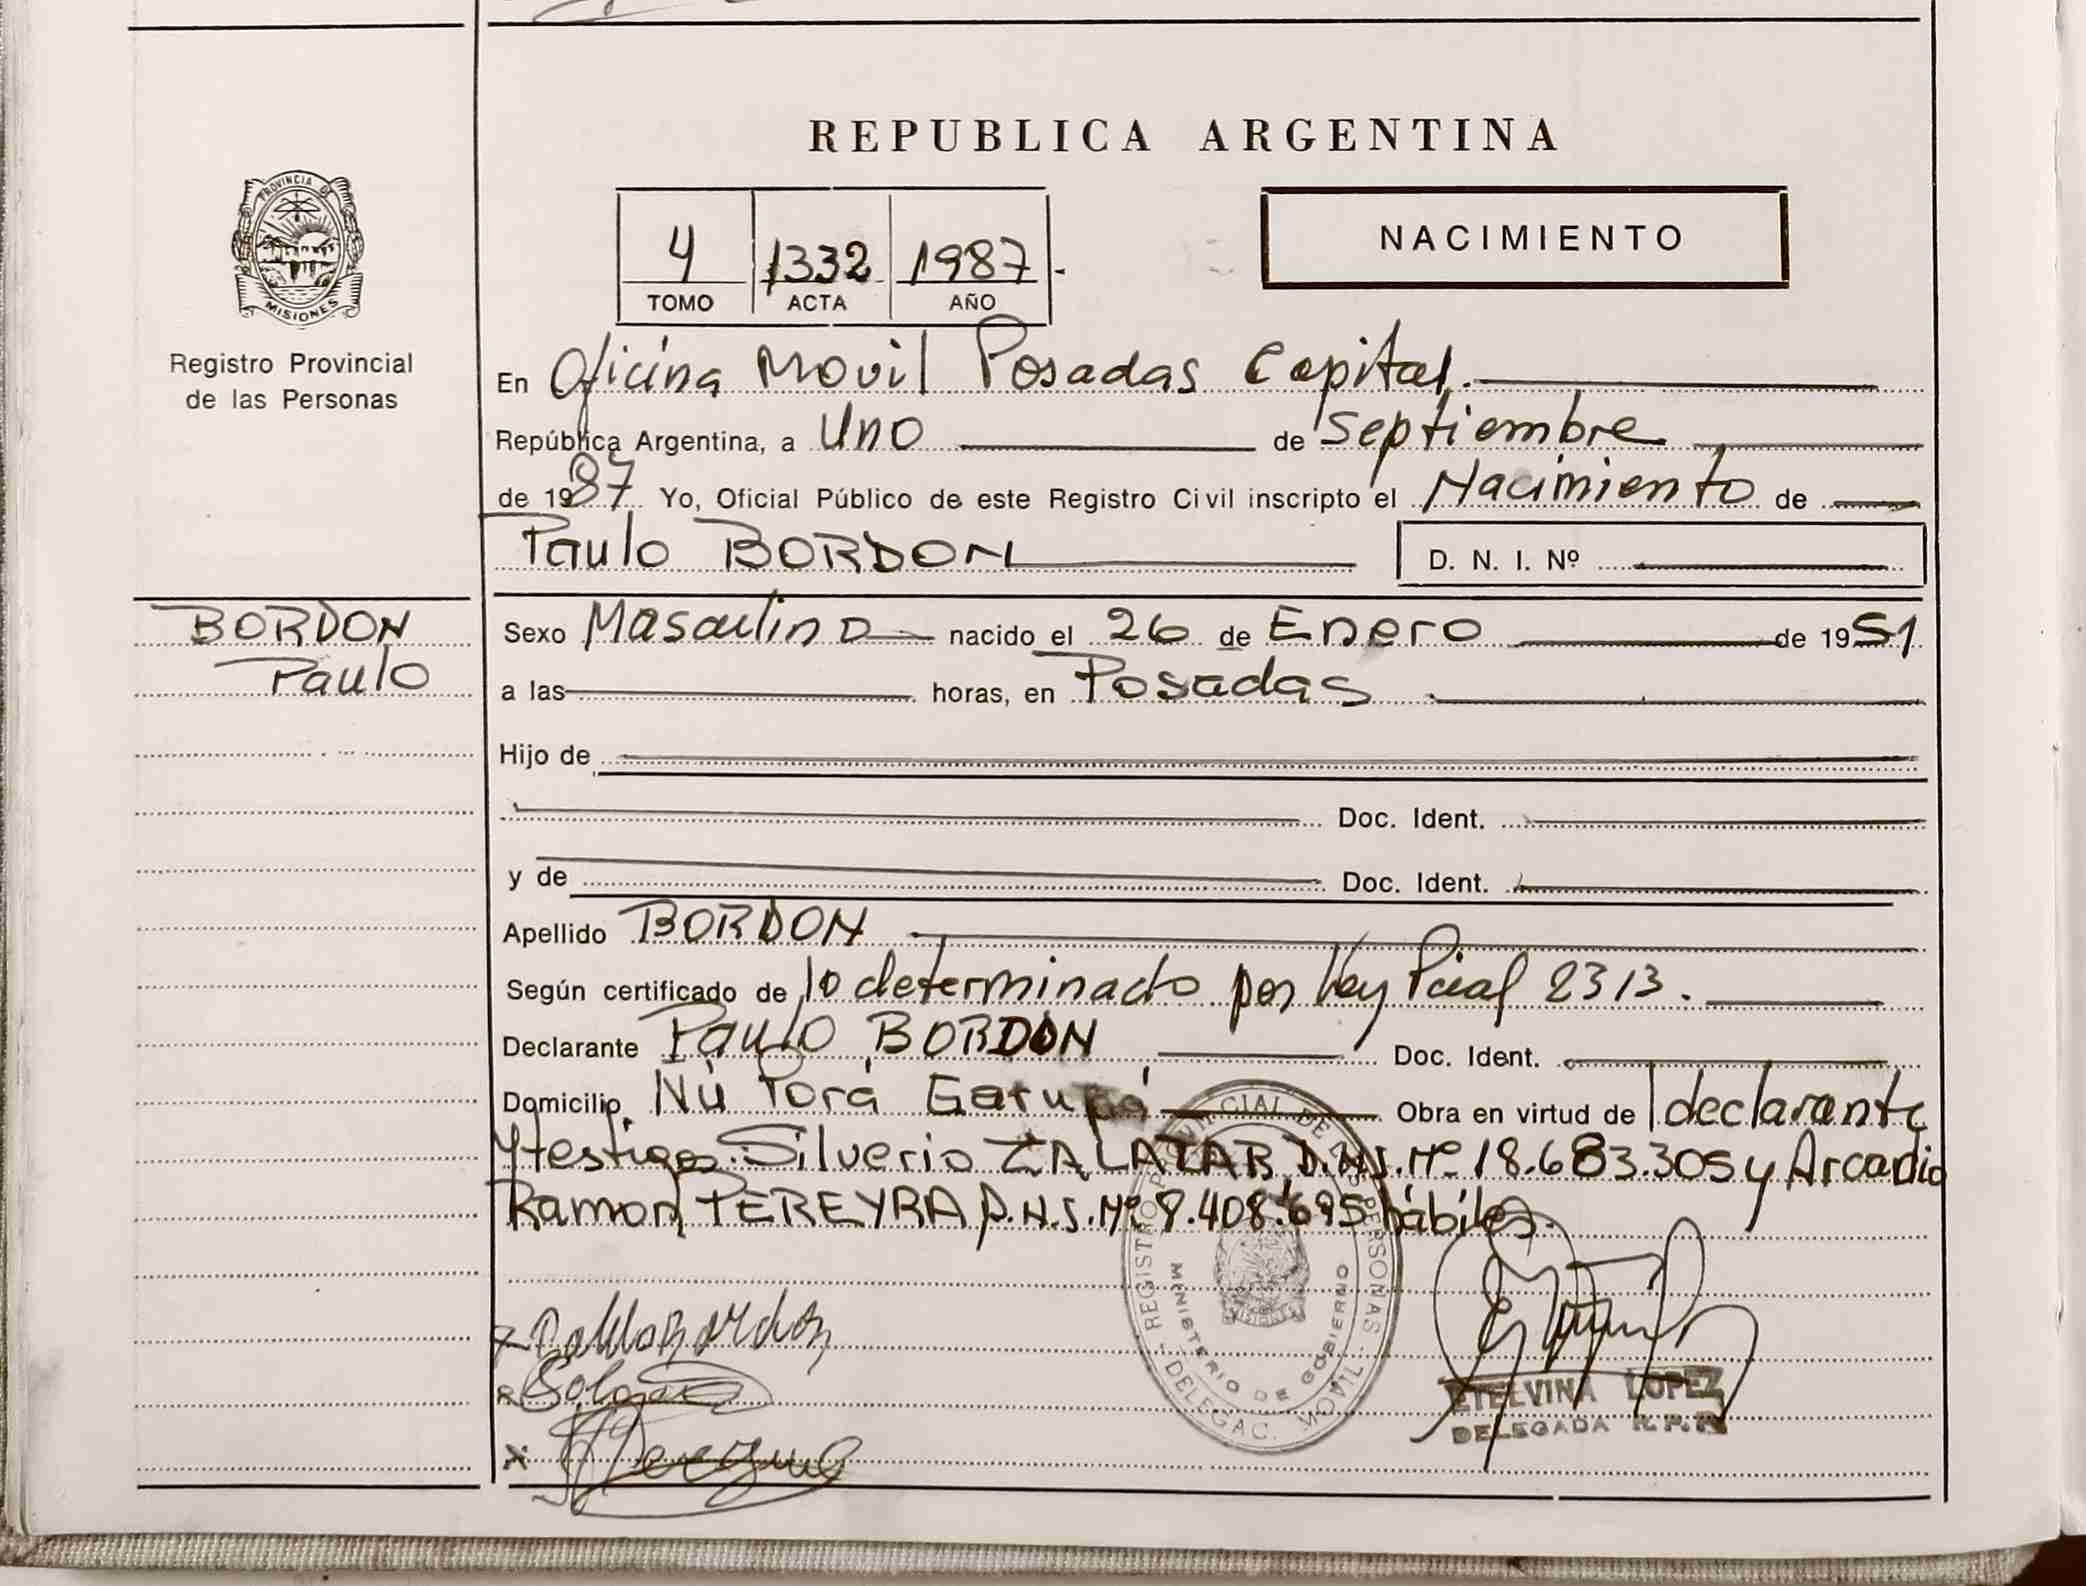 REPUBLICA ARGENTINA
PROVINCIA DE
MISIONES
Registro Provincial
de las Personas
4 1332 1987
TOMO ACTA AÑO
NACIMIENTO
En Oficina Movil Posadas Capital.
República Argentina, a Uno de Septiembre
de 1987 Yo, Oficial Público de este Registro Civil inscripto el Nacimiento de
Paulo BORDON D. N. I. Nº
BORDON
Paulo
Sexo Masculino nacido el 26 de Enero de 1951
a las horas, en Posadas
Hijo de
Doc. Ident.
y de Doc. Ident.
Apellido BORDON
Según certificado de lo determinado por Ley Pcial 2313.
Declarante Paulo BORDON Doc. Ident.
Domicilio Ñú Porá Garupá Obra en virtud de declarante
y testigos Silverio ZALAZAR D.N.I. Nº 18.683.305 y Arcadio
Ramon PEREYRA D.N.I. Nº 8.408.695 hábiles.
REGISTRO PROVINCIAL DE LAS PERSONAS
MINISTERIO DE GOBIERNO
DELEGAC. MOVIL
ETELVINA LOPEZ
DELEGADA R.P.P.